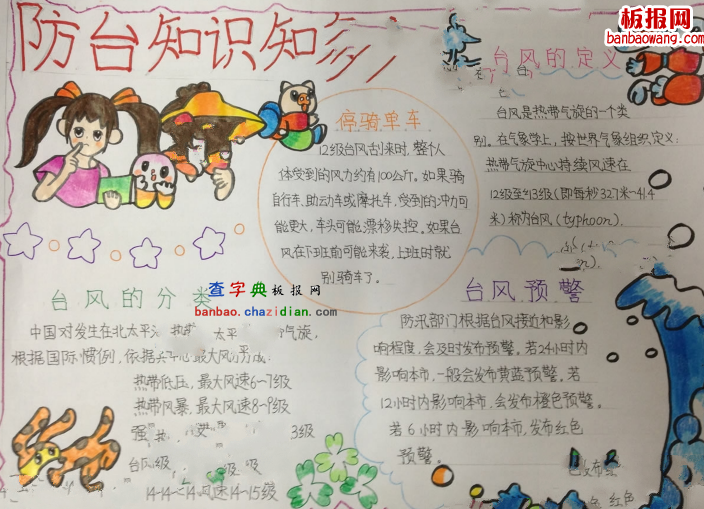 防台知识知多
板报网
banbaowang.com
台风的定义
台风是热带气旋的一个类
别。在气象学上,按世界气象组织定义:
热带气旋中心持续风速在
12级至13级(即每秒32.7米~41.4
米)称为台风(typhoon).
停骑单车
12级台风刮来时,整个人
体受到的风力约有100公斤。如果骑
自行车、助动车或摩托车,受到的冲力可
能更大,车头可能漂移失控。如果台
风在下班前可能来袭,上班时就
别骑车了。
台风的分类
查字典板报网
banbao.chazidian.com
中国对发生在北太平 热 太平 气旋,
根据国际惯例,依据 中心最大风 成:
热带低压,最大风速6~7级
热带风暴,最大风速8~9级
强热 3级
台风级, 级
14级 风速14~15级
台风预警
防汛部门根据台风接近和影
响程度,会及时发布预警。若24小时内
影响本市,一般会发布黄蓝预警。若
12小时内影响本市,会发布橙色预警。
若6小时内影响本市,发布红色
预警。
红色